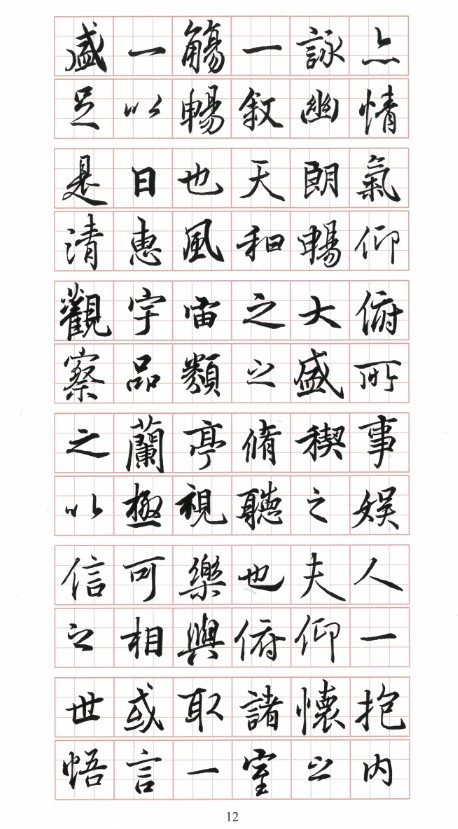 盛一觴一詠亦
足以暢敘幽情
是日也天朗氣
清惠風和暢仰
觀宇宙之大俯
察品類之盛所
之蘭亭脩稧事
以極視聽之娛
信可樂也夫人
之相與俯仰一
世或取諸懷抱
悟言一室之內
12